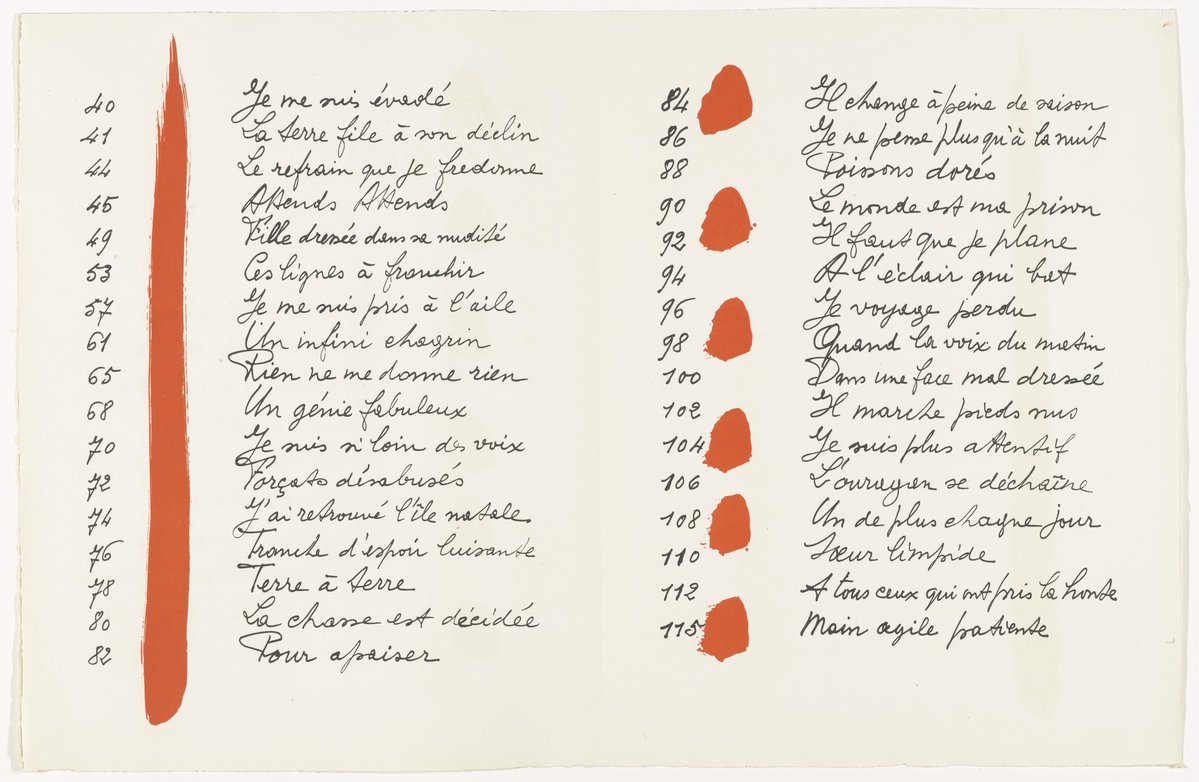 40 Je me suis évadé
41 La terre file à son déclin
44 Le refrain que je fredonne
45 Attends Attends
49 Fille dressée dans sa nudité
53 Ces lignes à franchir
57 Je me suis pris à l'aile
61 Un infini chagrin
65 Rien ne me donne rien
68 Un génie fabuleux
70 Je suis si loin des voix
72 Forçats désabusés
74 J'ai retrouvé l'île natale
76 Tranche d'espoir luisante
78 Terre à terre
80 La chasse est décidée
82 Pour apaiser
84 Il change à peine de saison
86 Je ne pense plus qu'à la nuit
88 Poissons dorés
90 Le monde est ma prison
92 Il faut que je plane
94 A l'éclair qui bat
96 Je voyage perdu
98 Quand la voix du matin
100 Dans une face mal dressée
102 Il marche pieds nus
104 Je suis plus attentif
106 L'ouragan se déchaîne
108 Un de plus chaque jour
110 Sœur limpide
112 A tous ceux qui ont pris la honte
115 Main agile patiente